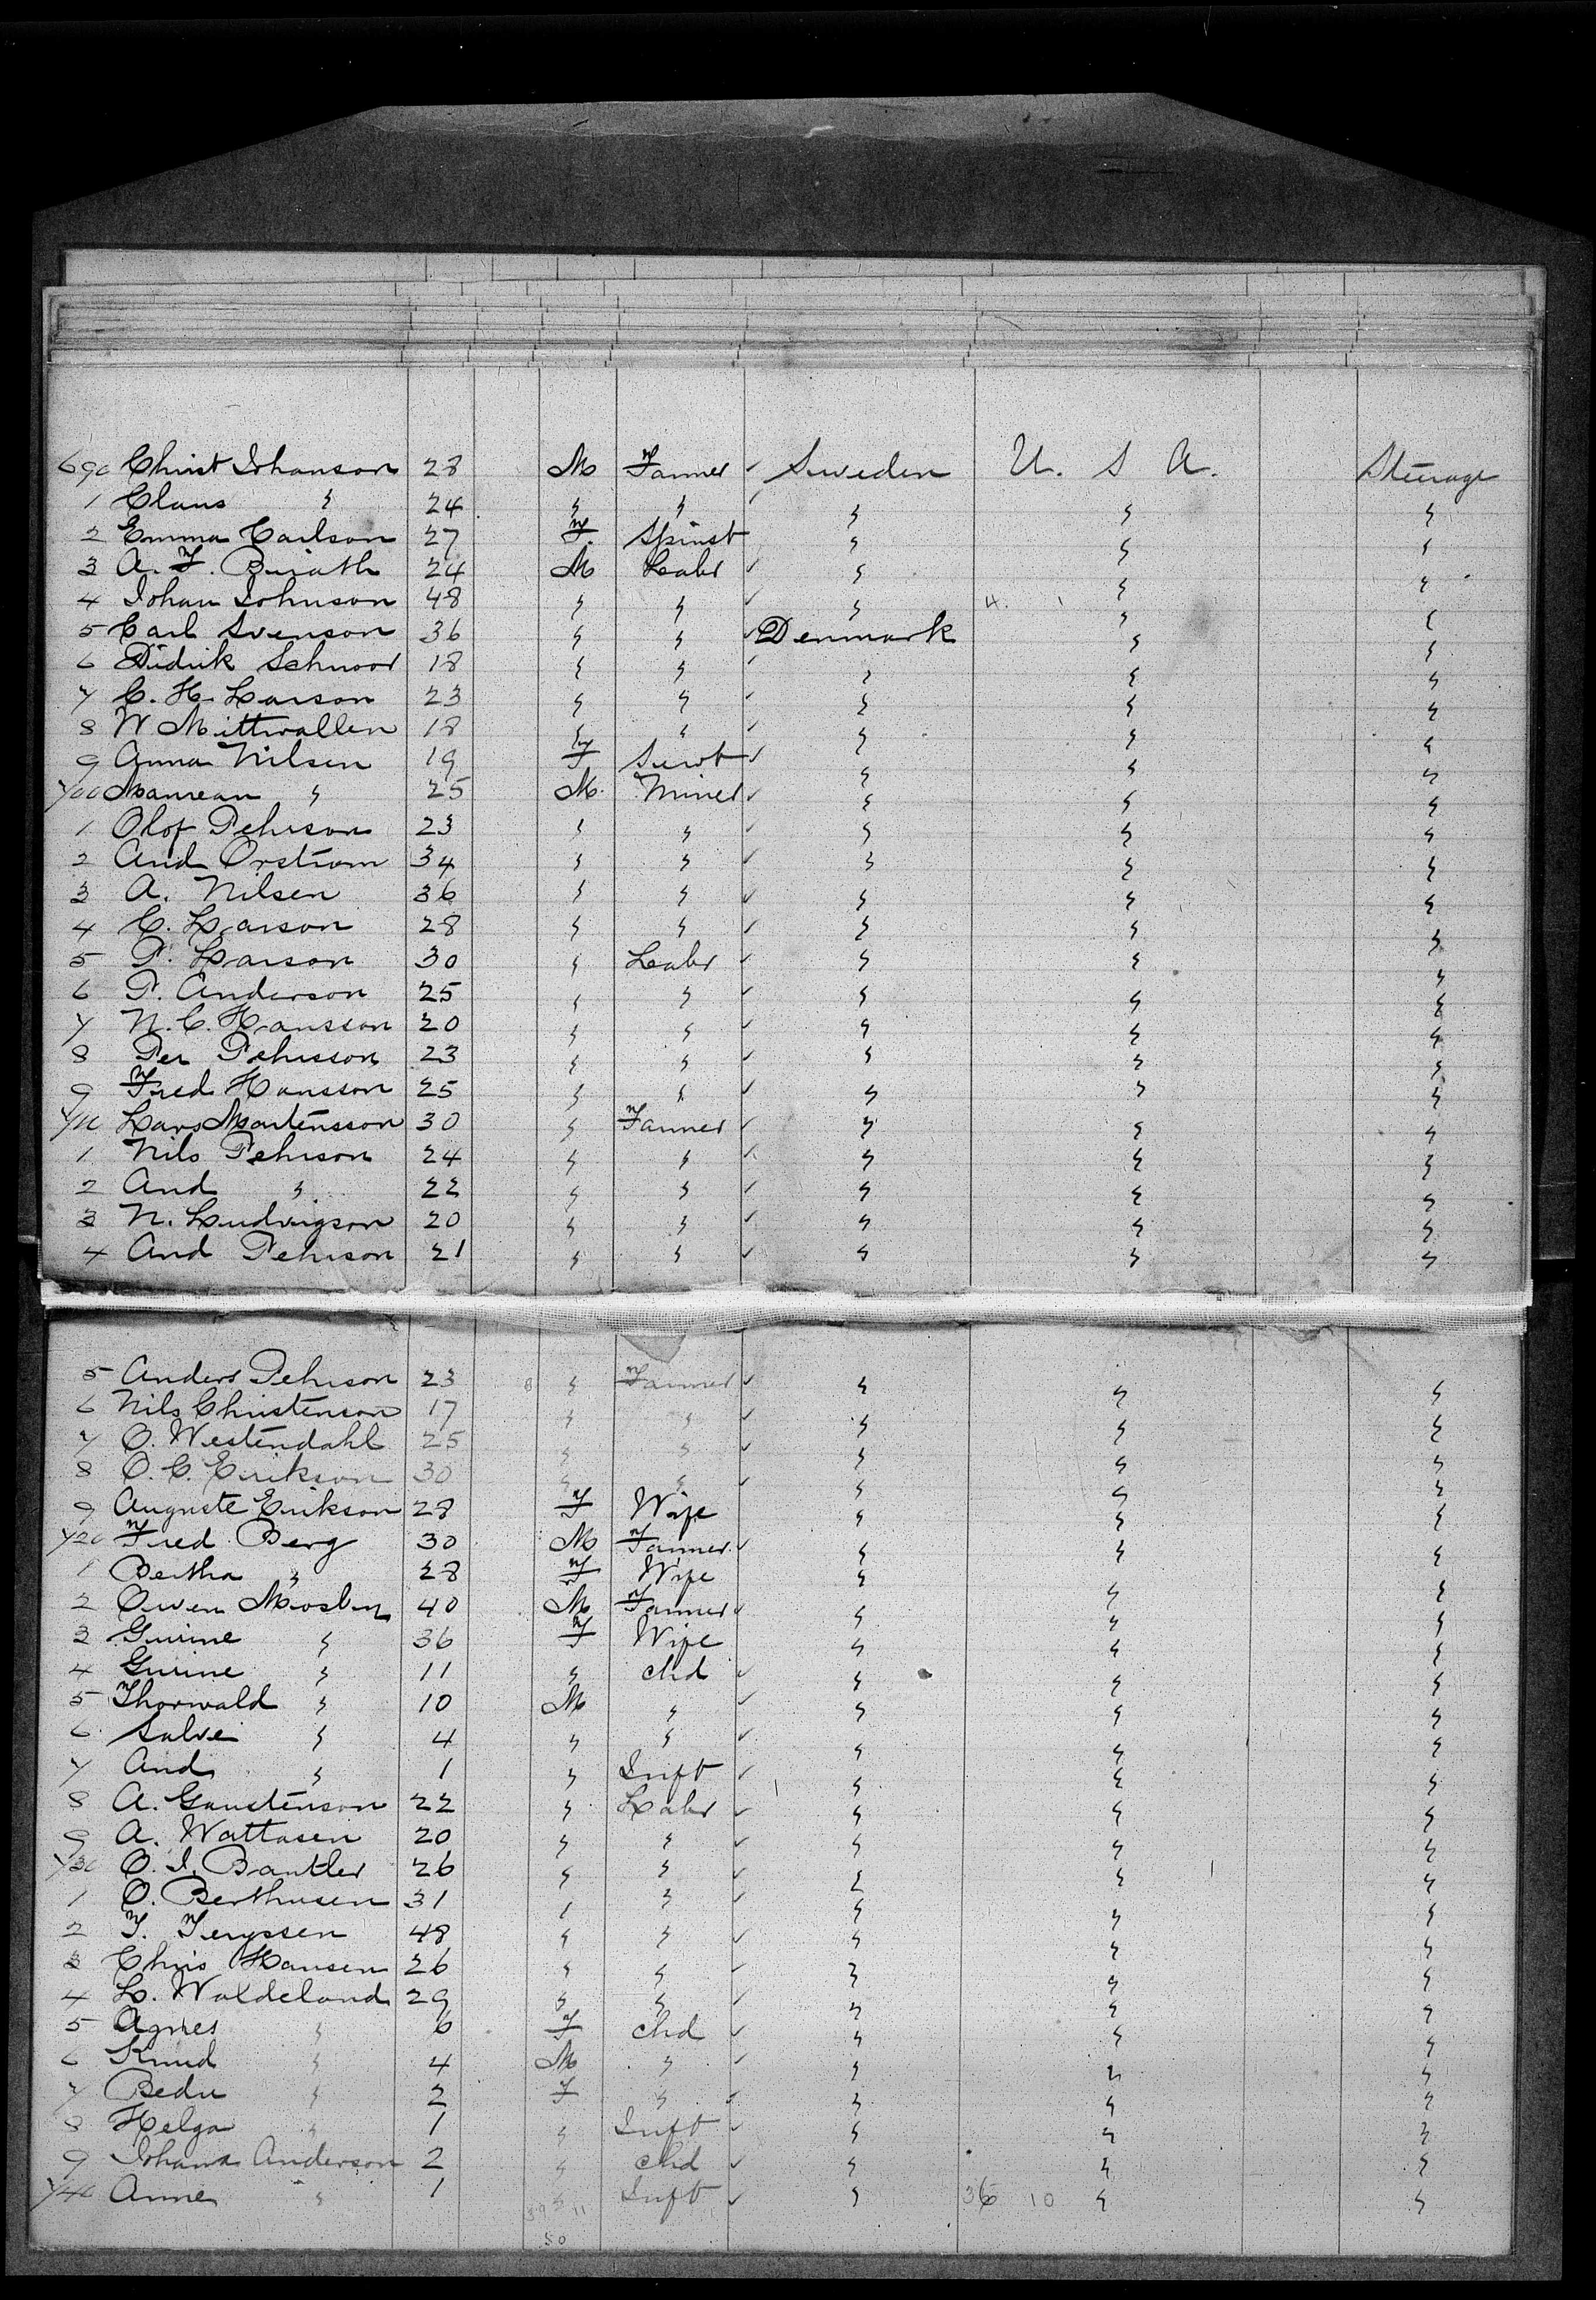 690 Christ Johanson 28 M Farmer ✓ Sweden U. S A. Steerage
1 Claus " 24 " " " " "
2 Emma Carlson 27 F. Spinst " " "
3 A. F. Burath 24 M Labr ✓ " " "
4 Johan Johnson 48 " " ✓ " 4. 1 " "
5 Carl Svenson 36 " " ✓ Denmark " "
6 Didrik Schnoor 18 " " ✓ " " "
7 C. H. Larson 23 " " ✓ " " "
8 W Mittwallen 18 " " ✓ " " "
9 Anna Nilsen 19 F Servt ✓ " " "
700 " 25 M. Miner ✓ " " "
1 Olof Pehrson 23 " " ✓ " " "
2 And Orstrom 34 " " ✓ " " "
3 A. Nilsen 36 " " ✓ " " "
4 C. Larson 28 " " ✓ " " "
5 P. Larson 30 " Labr ✓ " " "
6 P. Anderson 25 " " ✓ " " "
7 N. C. Hansson 20 " " ✓ " " "
8 Per Pehrsson 23 " " ✓ " " "
9 Fred Hansson 25 " " ✓ " " "
710 Lars Martensson 30 " Farmer ✓ " " "
1 Nils Pehrson 24 " " ✓ " " "
2 And " 22 " " ✓ " " "
3 N. Ludvigson 20 " " ✓ " " "
4 And Pehrson 21 " " ✓ " " "
5 Anders Pehrson 23 " Farmer ✓ " " "
6 Nils Christenson 17 " " ✓ " " "
7 O. Westendahl 25 " " ✓ " " "
8 O. C. Erikson 30 " " ✓ " " "
9 Auguste Erikson 28 F Wife " " "
720 Fred Berg 30 M Farmer ✓ " " "
1 Bertha " 28 F Wife " " "
2 Owen 40 M Farmer ✓ " " "
3 Gurine " 36 F Wife " " "
4 Gurine " 11 " chd ✓ " " "
5 Thorwald " 10 M " ✓ " " "
6 Salve " 4 " " ✓ " " "
7 And " 1 " Inft ✓ " " "
8 A. Gaustenson 22 " Labr ✓ " " "
9 A. Wattasen 20 " " ✓ " " "
730 O. I. Bantler 26 " " ✓ " " "
1 O. Berthusen 31 " " ✓ " " "
2 T. Teryssen 48 " " ✓ " " "
3 Chris Hansen 26 " " ✓ " " "
4 L. Waldeland 29 " " ✓ " " "
5 Agnes " 6 F chd ✓ " " "
6 Knud " 4 M " ✓ " " "
7 " 2 F " ✓ " " "
8 Helga " 1 " Inft ✓ " " "
9 Johana Anderson 2 " chd ✓ " " "
740 Anne " 1 " Inft ✓ " 36 10 " "
39 11
50